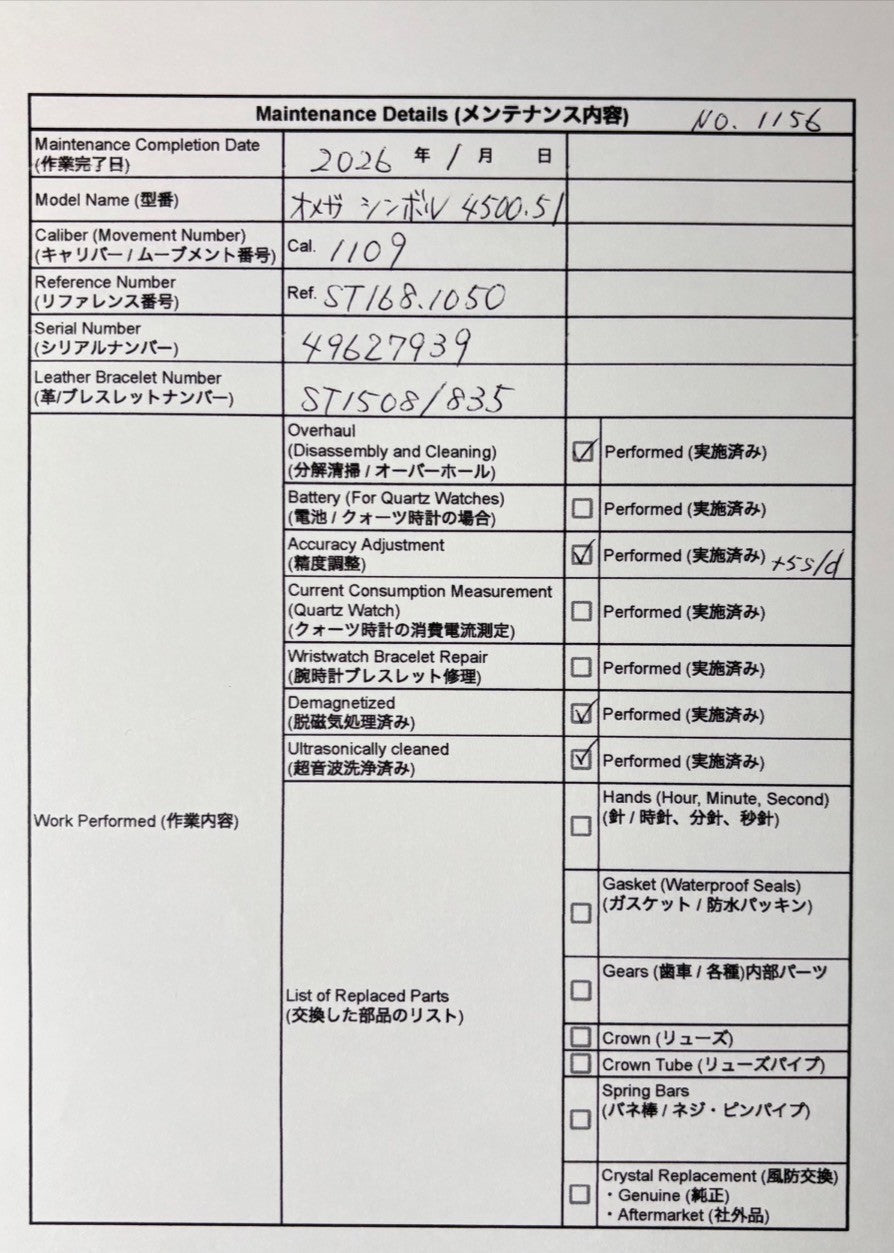 Maintenance Details (メンテナンス内容) NO. 1156
Maintenance Completion Date
(作業完了日)
2026 年 1 月 日
Model Name (型番)
オメガ シンボル 4500.51
Caliber (Movement Number)
(キャリバー / ムーブメント番号)
Cal. 1109
Reference Number
(リファレンス番号)
Ref. ST168.1050
Serial Number
(シリアルナンバー)
49627939
Leather Bracelet Number
(革/ブレスレットナンバー)
ST1508/835
Work Performed (作業内容)
Overhaul
(Disassembly and Cleaning)
(分解清掃 / オーバーホール)
Performed (実施済み)
Battery (For Quartz Watches)
(電池 / クォーツ時計の場合)
Performed (実施済み)
Accuracy Adjustment
(精度調整)
Performed (実施済み) +5s/d
Current Consumption Measurement
(Quartz Watch)
(クォーツ時計の消費電流測定)
Performed (実施済み)
Wristwatch Bracelet Repair
(腕時計ブレスレット修理)
Performed (実施済み)
Demagnetized
(脱磁気処理済み)
Performed (実施済み)
Ultrasonically cleaned
(超音波洗浄済み)
Performed (実施済み)
List of Replaced Parts
(交換した部品のリスト)
Hands (Hour, Minute, Second)
(針 / 時針、分針、秒針)
Gasket (Waterproof Seals)
(ガスケット / 防水パッキン)
Gears (歯車 / 各種)内部パーツ
Crown (リューズ)
Crown Tube (リューズパイプ)
Spring Bars
(バネ棒 / ネジ・ピンパイプ)
Crystal Replacement (風防交換)
・Genuine (純正)
・Aftermarket (社外品)